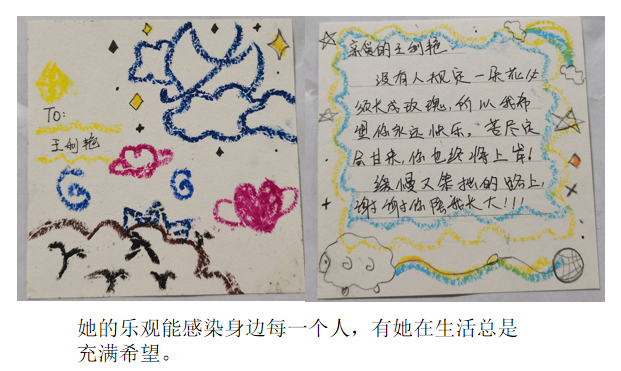 To:
王剑艳
亲爱的王剑艳:
没有人规定一朵花必
须长成玫瑰,所以我希
望你永远快乐。苦尽定
会甘来,你也终将上岸!
缓慢又笨拙的路上,
谢谢你陪我长大!!!
她的乐观能感染身边每一个人，有她在生活总是
充满希望。